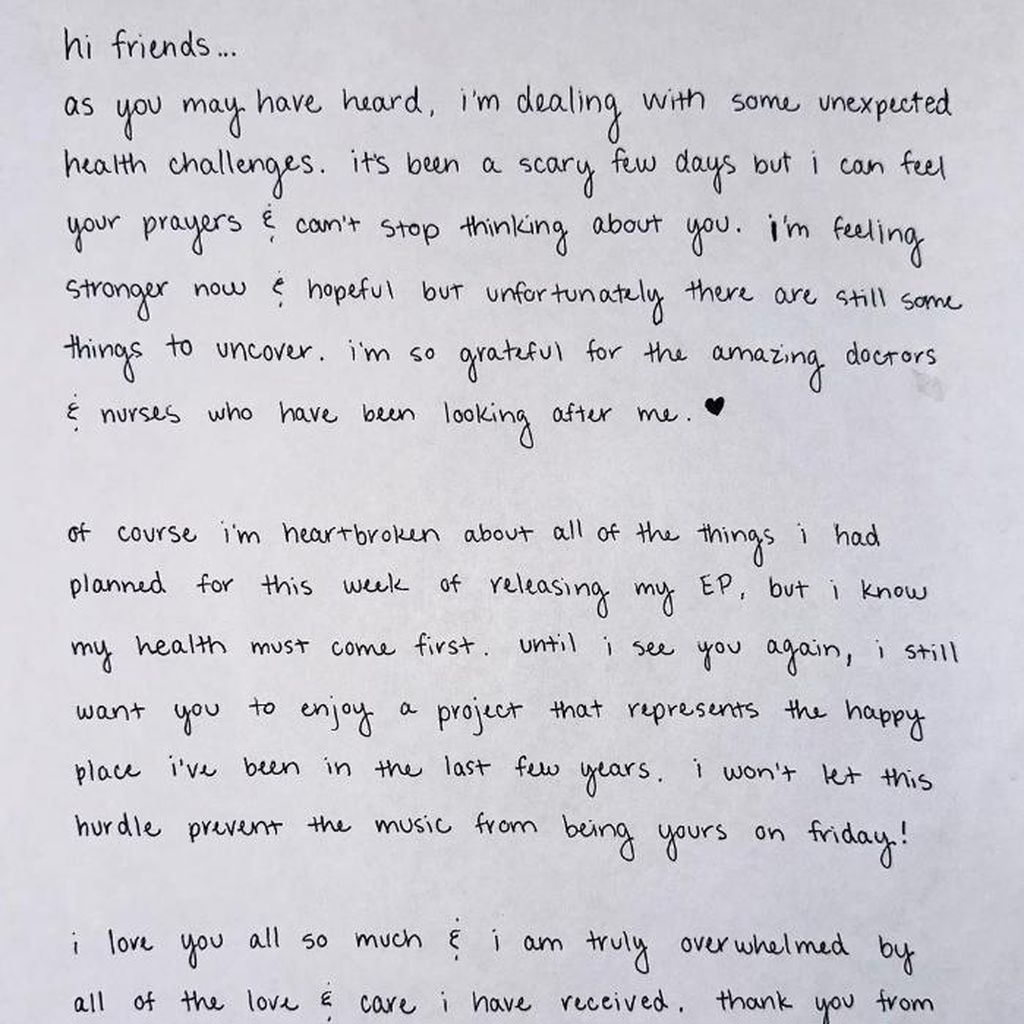 hi friends...
as you may have heard, i'm dealing with some unexpected
health challenges. it's been a scary few days but i can feel
your prayers & can't stop thinking about you. i'm feeling
stronger now & hopeful but unfortunately there are still some
things to uncover. i'm so grateful for the amazing doctors
& nurses who have been looking after me. ♥
of course i'm heartbroken about all of the things i had
planned for this week of releasing my EP, but i know
my health must come first. until i see you again, i still
want you to enjoy a project that represents the happy
place i've been in the last few years. i won't let this
hurdle prevent the music from being yours on friday!
i love you all so much & i am truly overwhelmed by
all of the love & care i have received. thank you from